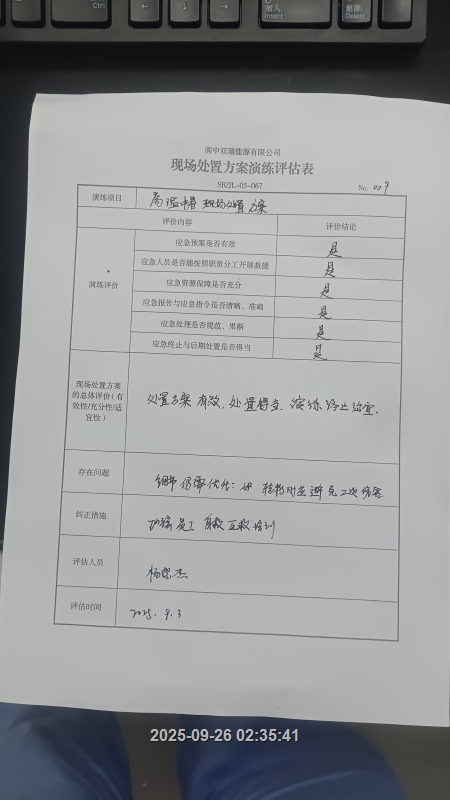 Ctrl
插入
Insert
删除
Delete
阆中双瑞能源有限公司
现场处置方案演练评估表
SR/JL-05-067
No. 009
演练项目
高温中暑 现场处置方案
评价内容
评价结论
演练评价
应急预案是否有效
是
应急人员是否能按照职责分工开展救援
是
应急资源保障是否充分
是
应急报告与应急指令是否清晰、准确
是
应急处理是否规范、果断
是
应急终止与后期处置是否得当
是
现场处置方案
的总体评价（有
效性/充分性/适
宜性）
处置方案有效，处置得当，演练终止适宜.
存在问题
细节仍需优化: 如 转移时应避免二次伤害
纠正措施
员工 自救互救培训
评估人员
杨 杰
评估时间
2025. 9. 3
2025-09-26 02:35:41